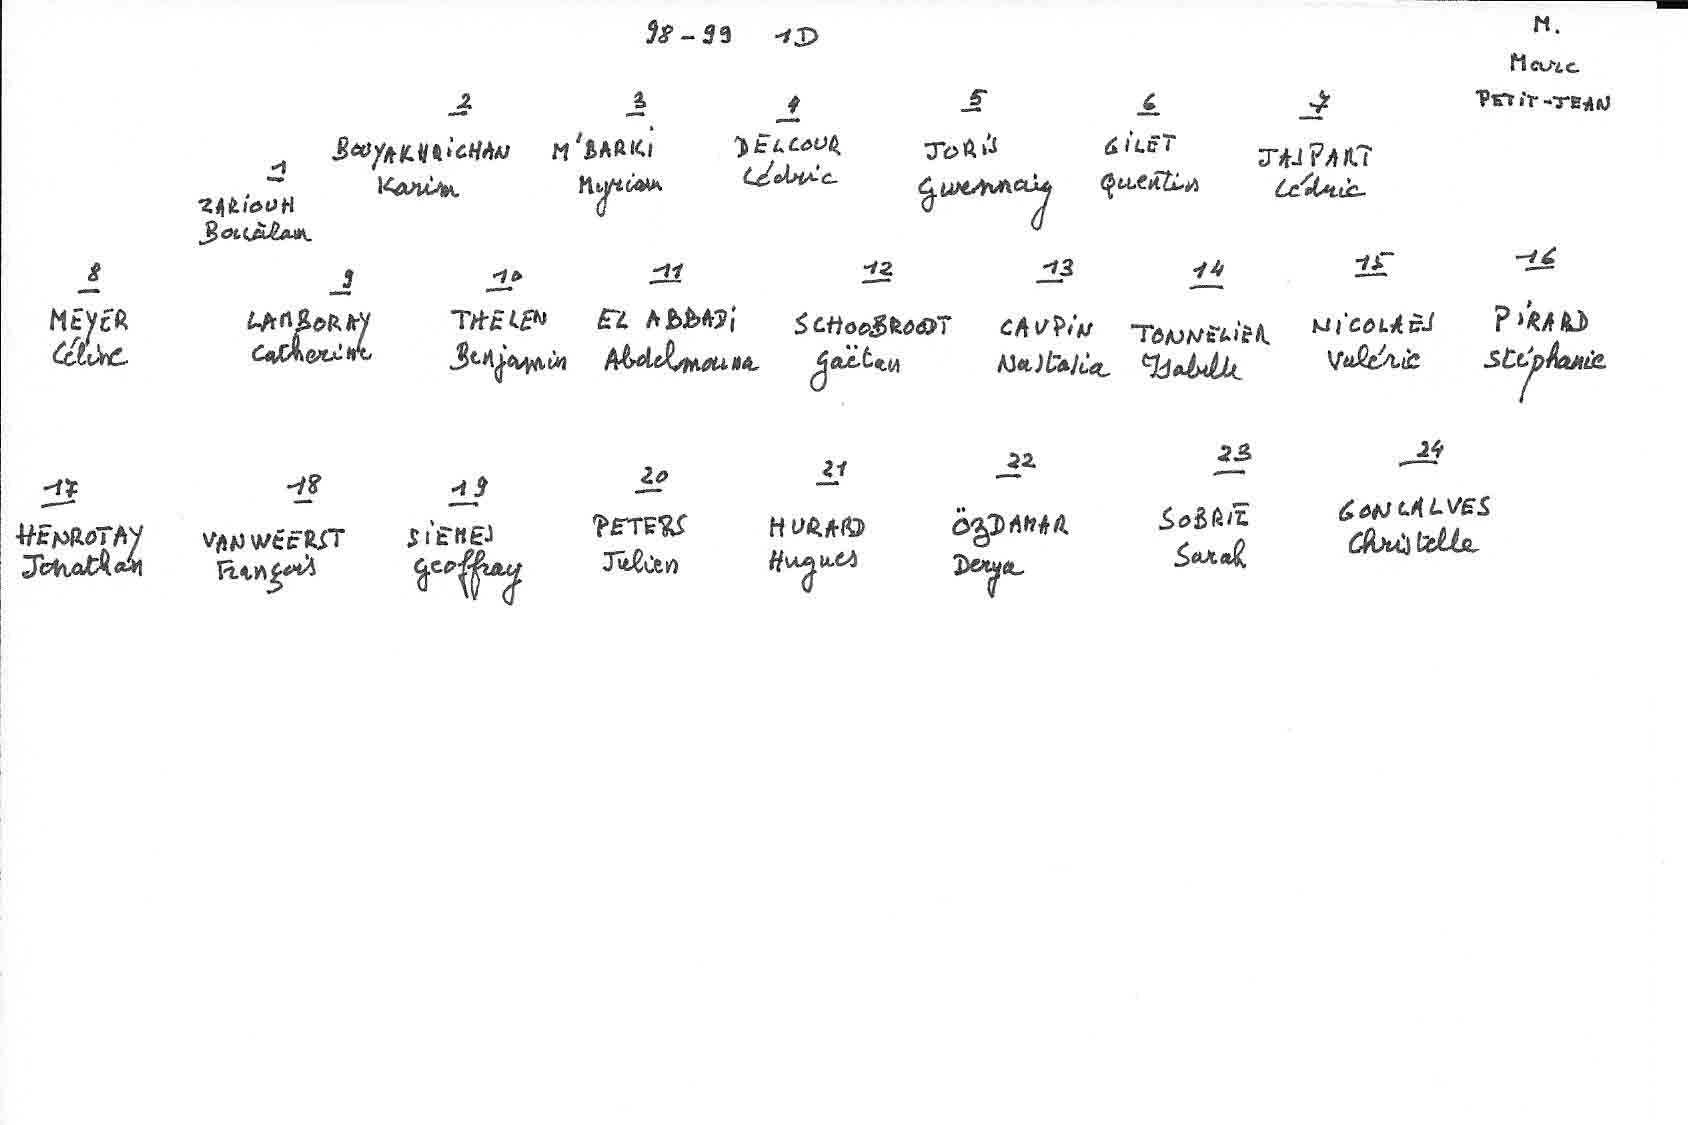 98-99 1D
M.
Marc
PETIT-JEAN
1
ZARIOUH
2
BOUYAKHRICHAN
Karim
3
M'BARKI
Myriam
4
DELCOUR
Cédric
5
JORIS
Gwennaig
6
GILET
Quentin
7
JASPART
Cédric
8
MEYER
Céline
9
LAMBORAY
Catherine
10
THELEN
Benjamin
11
EL ABBADI
Abdelmouna
12
SCHOOBROODT
Gaëtan
13
CAUPIN
Nastasia
14
TONNELIER
Isabelle
15
NICOLAES
Valérie
16
PIRARD
Stéphanie
17
HENROTAY
Jonathan
18
VANWEERST
François
19
SIEMES
Geoffray
20
PETERS
Julien
21
HURARD
Hugues
22
ÖZDAMAR
Derya
23
SOBRIE
Sarah
24
GONCALVES
Christelle